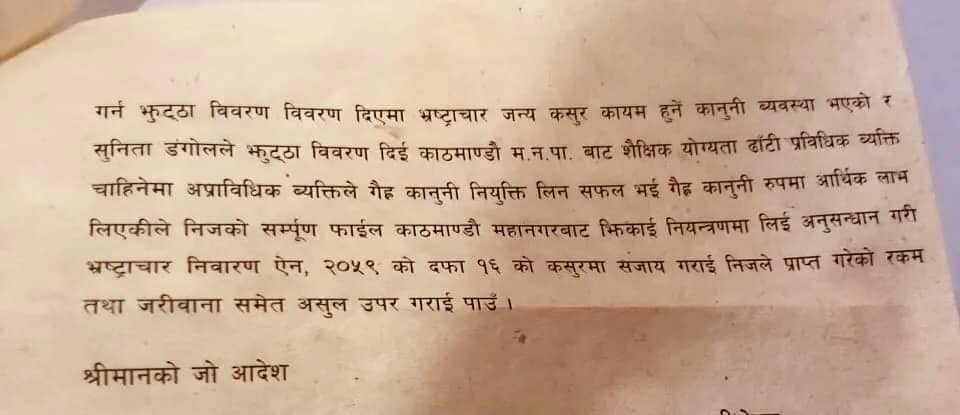 गर्न झुट्ठा विवरण विवरण दिएमा भ्रष्ट्राचार जन्य कसुर कायम हुनें कानुनी व्यवस्था भएको र
सुनिता डंगोलले झुट्ठा विवरण दिई काठमाण्डौ म.न.पा. बाट शैक्षिक योग्यता ढाँटी प्रविधिक व्यक्ति
चाहिनेमा अप्राविधिक व्यक्तिले गैह्र कानुनी नियुक्ति लिन सफल भई गैह्र कानुनी रुपमा आर्थिक लाभ
लिएकीले निजको सर्म्पूण फाईल काठमाण्डौ महानगरबाट झिकाई नियन्त्रणमा लिई अनुसन्धान गरी
भ्रष्ट्राचार निवारण ऐन, २०५९ को दफा १६ को कसुरमा संजाय गराई निजले प्राप्त गरेको रकम
तथा जरीवाना समेत असुल उपर गराई पाउँ ।
श्रीमानको जो आदेश